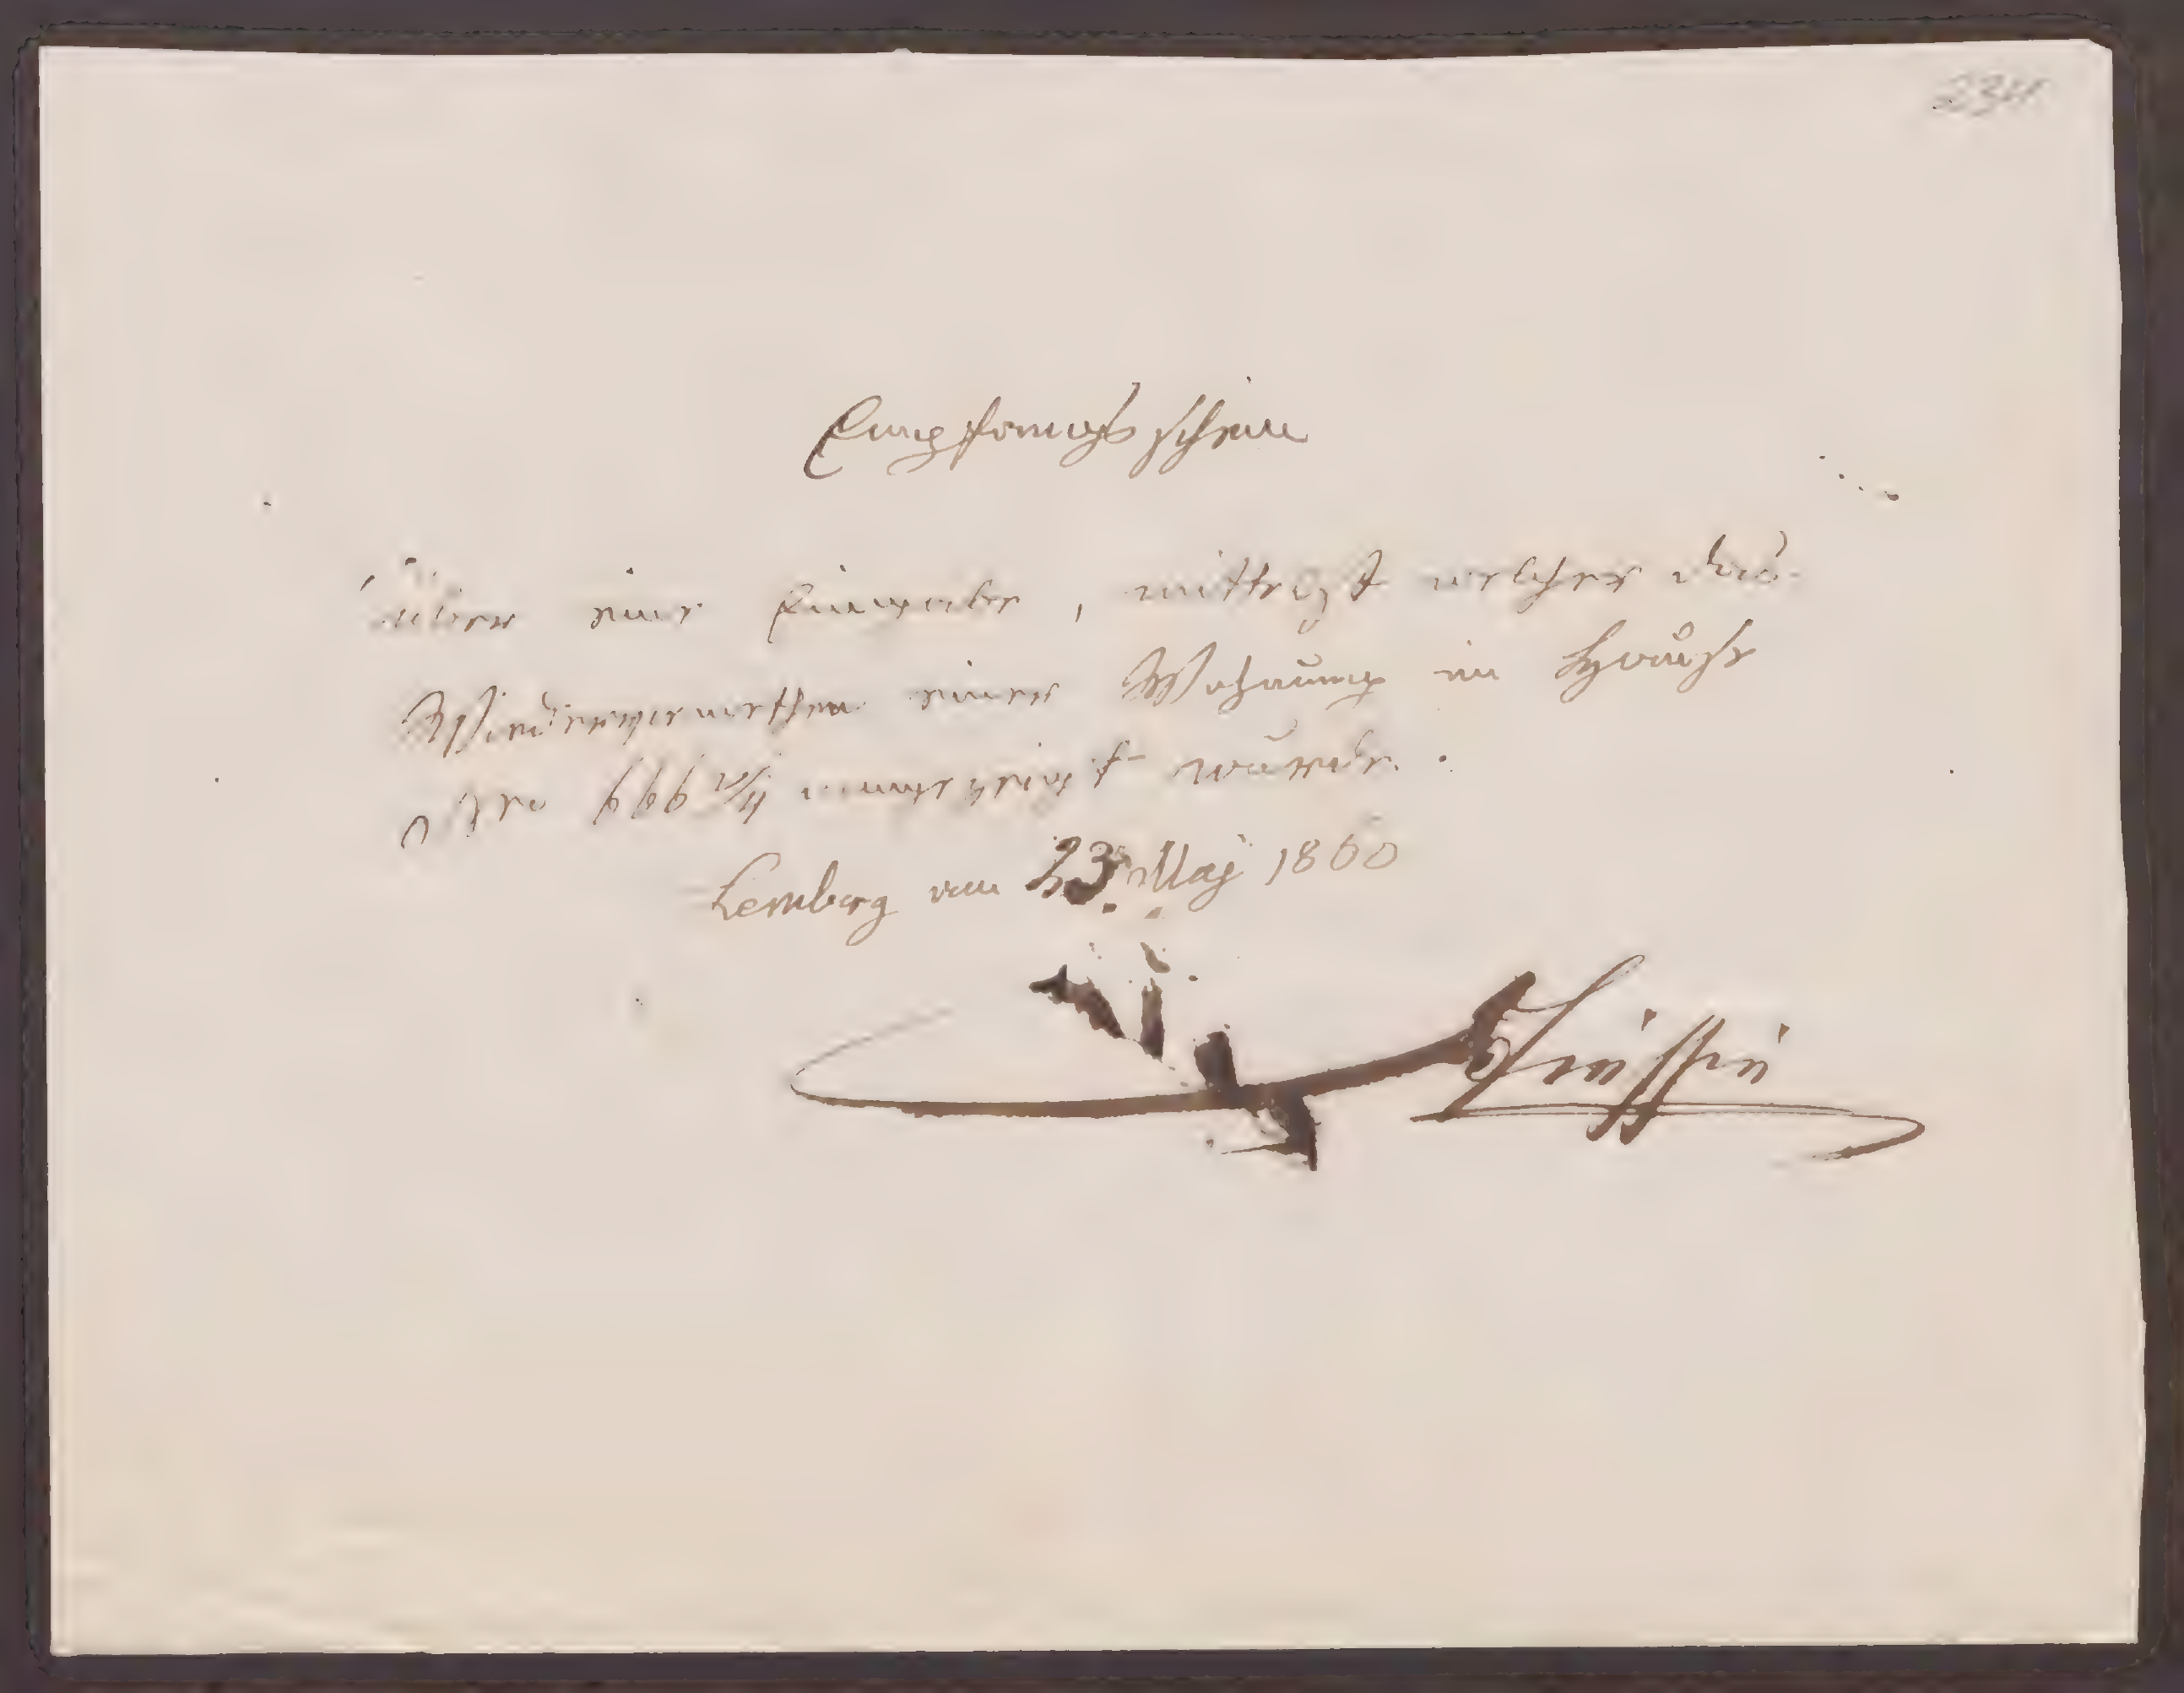 234
Empfangsschein
über eine Eingabe, mittelst welcher das
Wiedervermiethen einer Wohnung im Hause
Nro 666 2/4 angezeigt wurde.
Lemberg am 23 Maj 1860